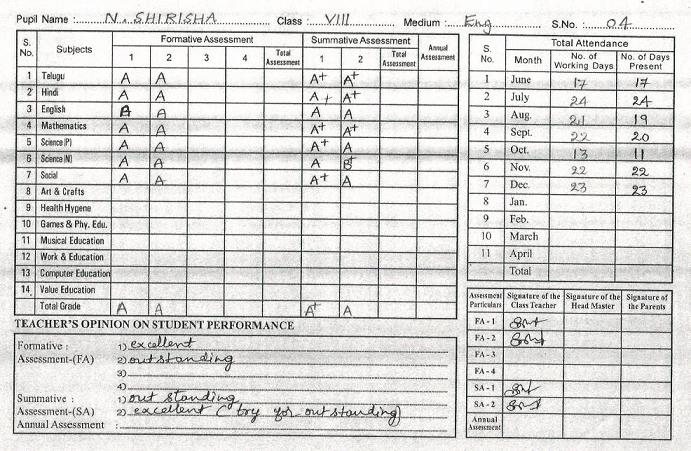 Pupil Name : N. SHIRISHA Class : VIII Medium : Eng S.No. : 04
S. No. Subjects Formative Assessment Summative Assessment Annual Assessment
1 2 3 4 Total Assessment 1 2 Total Assessment
1 Telugu A A A+ A+
2 Hindi A A A+ A+
3 English A A A A
4 Mathematics A A A+ A+
5 Science (P) A A A+ A
6 Science (N) A A A B+
7 Social A A A+ A
8 Art & Crafts
9 Health Hygene
10 Games & Phy. Edu.
11 Musical Education
12 Work & Education
13 Computer Education
14 Value Education
Total Grade A A A+ A
TEACHER'S OPINION ON STUDENT PERFORMANCE
Formative : 1) excellent
Assessment-(FA) 2) outstanding
3)
4)
Summative : 1) out standing
Assessment-(SA) 2) excellent (try for outstanding)
Annual Assessment :
S. No. Month Total Attendance
No. of Working Days No. of Days Present
1 June 17 17
2 July 24 24
3 Aug. 21 19
4 Sept. 22 20
5 Oct. 13 11
6 Nov. 22 22
7 Dec. 23 23
8 Jan.
9 Feb.
10 March
11 April
Total
Assessment Particulars Signature of the Class Teacher Signature of the Head Master Signature of the Parents
FA - 1
FA - 2
FA - 3
FA - 4
SA - 1
SA - 2
Annual Assessment